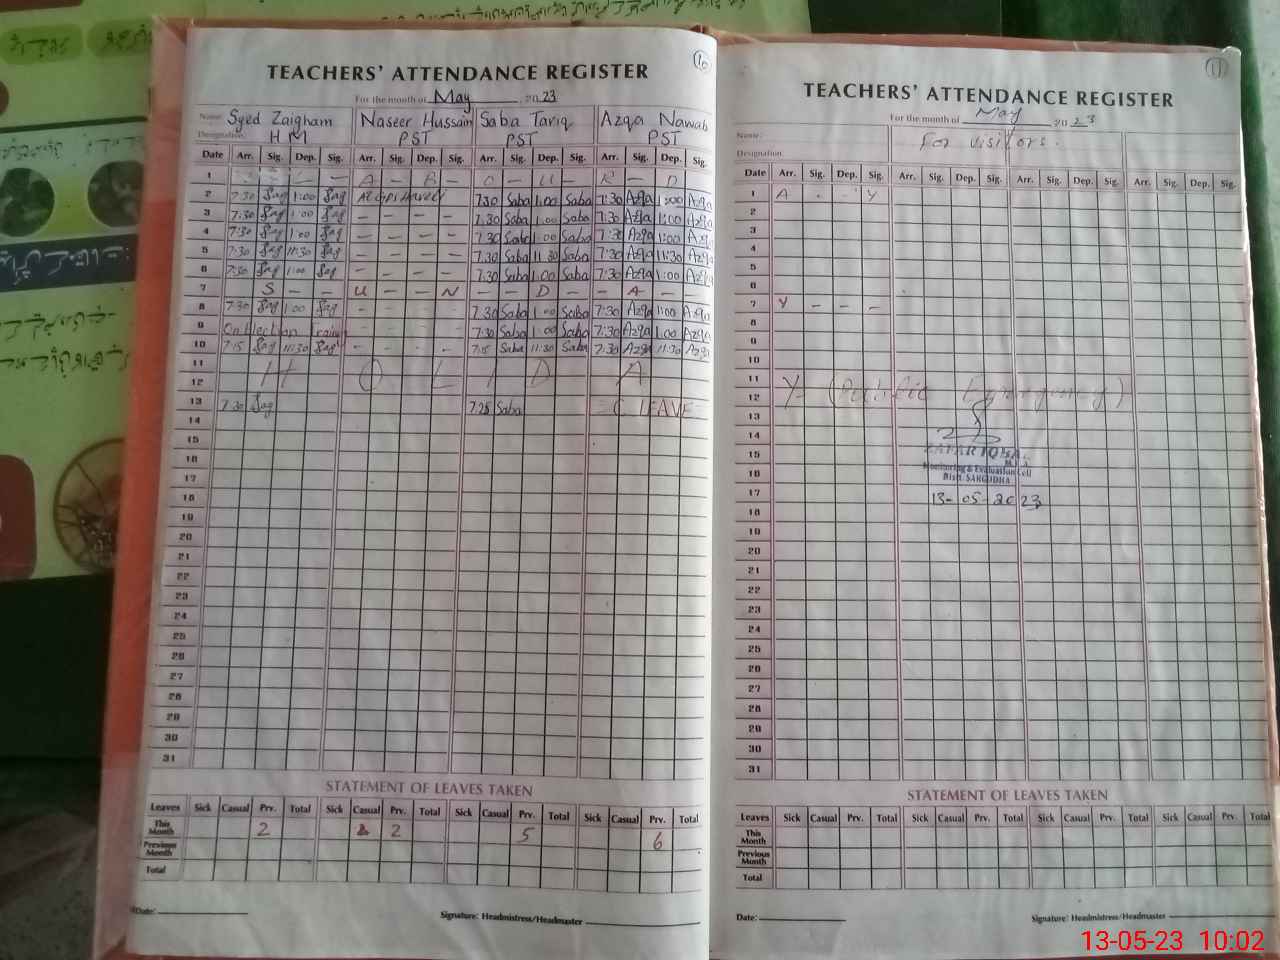 10
TEACHERS' ATTENDANCE REGISTER
For the month of May, 2023
Name: Syed Zaigham Naseer Hussain Saba Tariq Azqa Nawab
Designation: HM PST PST PST
Date Arr. Sig. Dep. Sig. Arr. Sig. Dep. Sig. Arr. Sig. Dep. Sig. Arr. Sig. Dep. Sig.
1 L — — A — B — O — U — R — D
2 7:30 1:00 7:30 Saba 1:00 Saba 7:30 Azqa 1:00 Azqa
3 7:30 1:00 — — — — 7:30 Saba 1:00 Saba 7:30 Azqa 1:00 Azqa
4 7:30 1:00 — — — — 7:30 Saba 1:00 Saba 7:30 Azqa 1:00 Azqa
5 7:30 11:30 — — — — 7:30 Saba 11:30 Saba 7:30 Azqa 11:30 Azqa
6 7:30 1:00 — — — — 7:30 Saba 1:00 Saba 7:30 Azqa 1:00 Azqa
7 S — — U — — N — — D — — A — —
8 7:30 1:00 - - - - 7:30 Saba 1:00 Saba 7:30 Azqa 1:00 Azqa
9 On Election - - - - 7:30 Saba 1:00 Saba 7:30 Azqa 1:00 Azqa
10 7:15 11:30 - - - - 7:15 Saba 11:30 Saba 7:30 Azqa 11:30 Azqa
11 H O L I D A
12
13 7:30 7:25 Saba C LEAVE
14
15
16
17
18
19
20
21
22
23
24
25
26
27
28
29
30
31
STATEMENT OF LEAVES TAKEN
Leaves Sick Casual Prv. Total Sick Casual Prv. Total Sick Casual Prv. Total Sick Casual Prv. Total
This Month 2 2 5 6
Previous Month
Total
Date: Signature: Headmistress/Headmaster
11
TEACHERS' ATTENDANCE REGISTER
For the month of May 2023
Name: For visitors.
Designation
Date Arr. Sig. Dep. Sig. Arr. Sig. Dep. Sig. Arr. Sig. Dep. Sig. Arr. Sig. Dep. Sig.
1 A - - Y
2
3
4
5
6
7 Y - - -
8
9
10
11 Y (Public Emergency)
12
13
14
15 ZAFAR IQBAL
M.E.A
16 Monitoring & Evaluation Cell
Distt. SARGODHA
17 13-05-2023
18
19
20
21
22
23
24
25
26
27
28
29
30
31
STATEMENT OF LEAVES TAKEN
Leaves Sick Casual Prv. Total Sick Casual Prv. Total Sick Casual Prv. Total Sick Casual Prv. Total
This Month
Previous Month
Total
Date: Signature: Headmistress/Headmaster
13-05-23 10:02